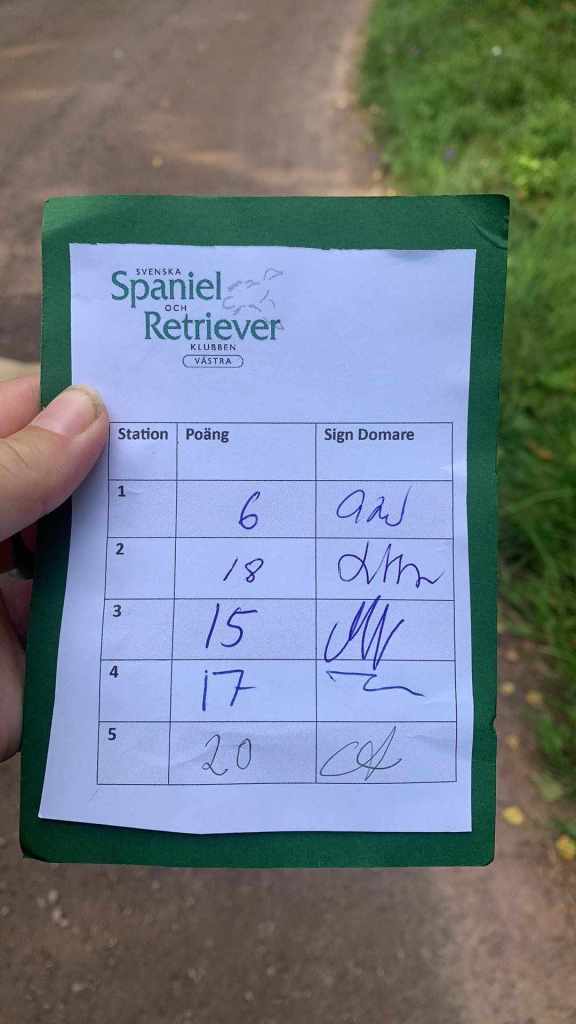 SVENSKA
Spaniel
OCH
Retriever
KLUBBEN
VÄSTRA
Station Poäng Sign Domare
1 6
2 18
3 15
4 17
5 20